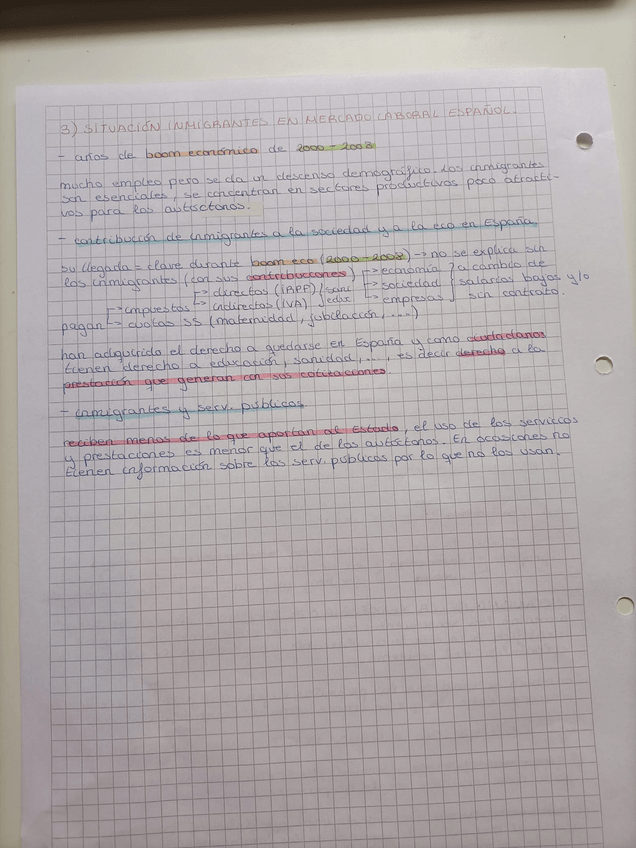 3) SITUACIÓN INMIGRANTES EN MERCADO LABORAL ESPAÑOL.
- años de boom económico de 2000-2008
mucho empleo pero se da un descenso demográfico. Los inmigrantes
son esenciales, se concentran en sectores productivos poco atracti-
vos para los autóctonos.
- contribución de inmigrantes a la sociedad y a la eco en España
su llegada = clave durante boom eco (2000-2008) → no se explica sin
los inmigrantes (con sus contribuciones) → economía } a cambio de
→ directos (IRPF) } sani → sociedad } salarios bajos y/o
→ impuestos → indirectos (IVA) } educ → empresas } sin contrato.
pagan → cuotas SS (maternidad, jubilación, ....)
han adquirido el derecho a quedarse en España y como ciudadanos
tienen derecho a educación, sanidad, ..., es decir derecho a la
prestación que generan con sus cotizaciones.
- inmigrantes y serv. públicos
reciben menos de lo que aportan al Estado, el uso de los servicios
y prestaciones es menor que el de los autóctonos. En ocasiones no
tienen información sobre los serv. públicos por lo que no los usan.